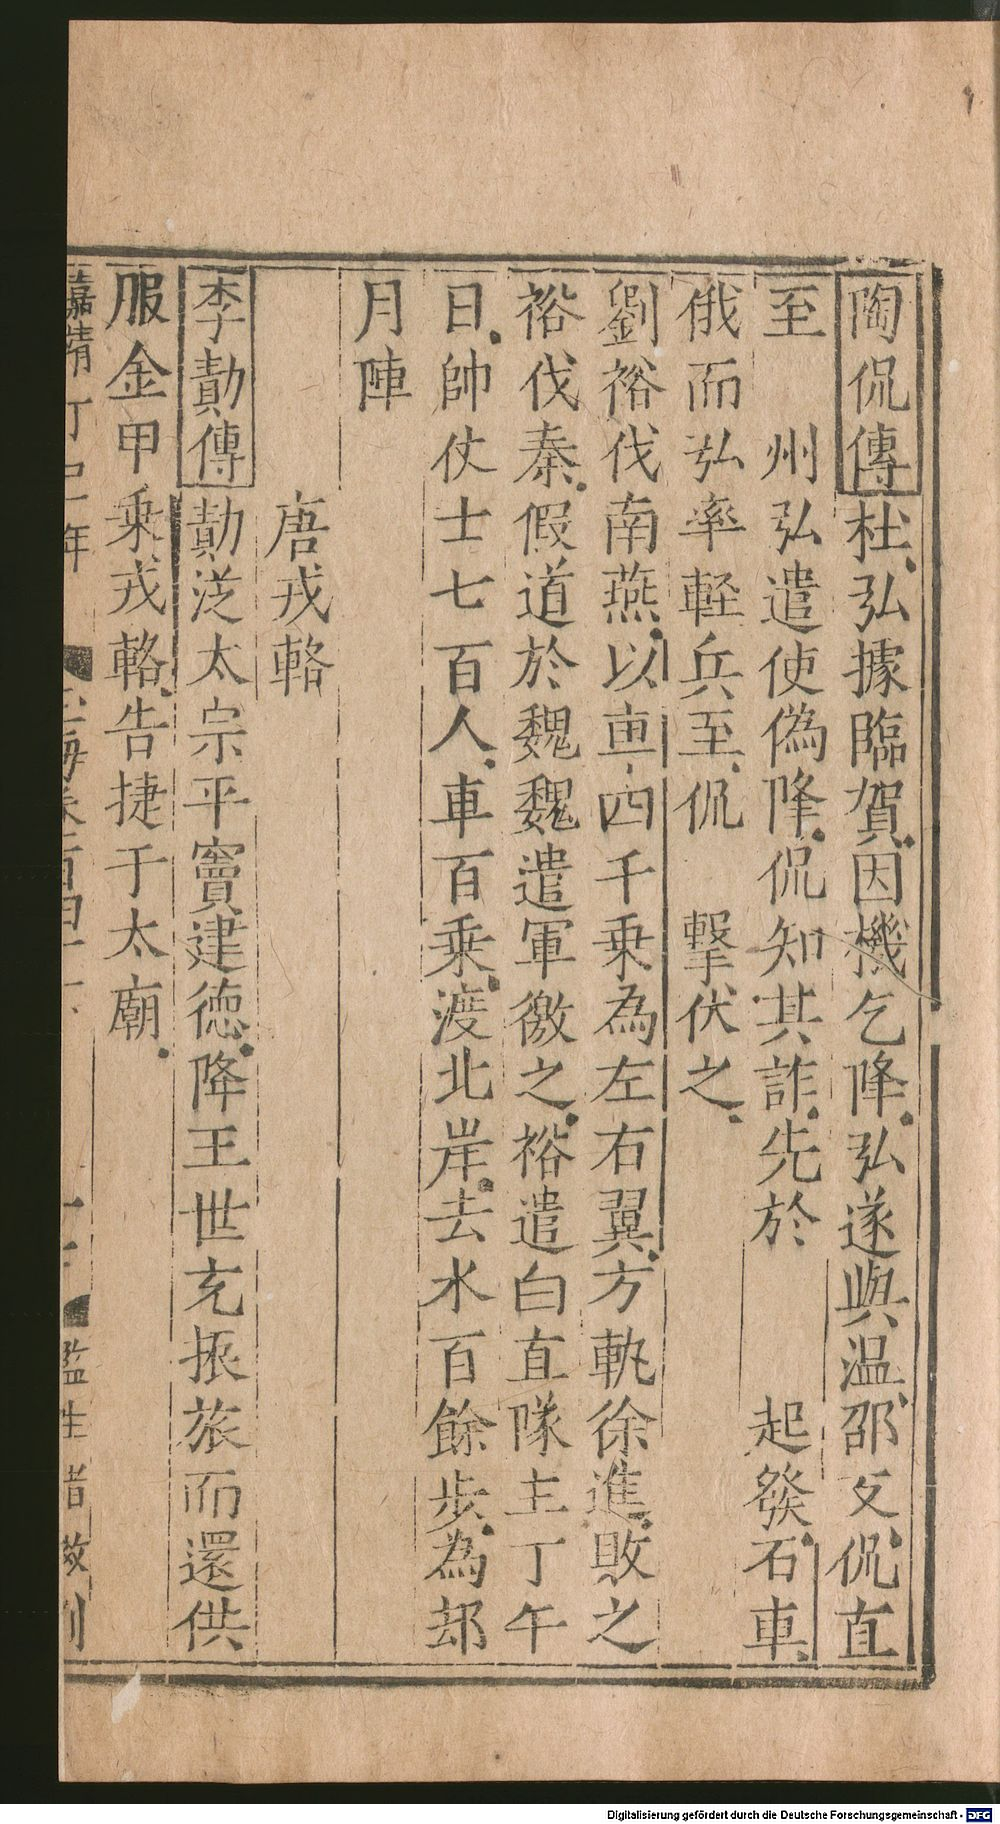 陶侃傳杜弘據臨賀因機乞降弘遂與温邵反侃直
至　州弘遣使偽降侃知其詐先於　　起發石車
俄而弘率軽兵至侃　擊伏之
劉裕伐南燕以車四千乗為左右翼方軌徐進敗之
裕伐秦假道於魏魏遣軍徼之裕遣白直隊主丁午
日帥仗士七百人車百乗渡北岸去水百餘步為却
月陣
唐戎輅
李勣傳勣從太宗平竇建徳降王世充振旅而還供
服金甲乗戎輅告捷于太廟
嘉靖丁巳年
海卷百四十
監生 敖刊
Digitalisierung gefördert durch die Deutsche Forschungsgemeinschaft - DFG